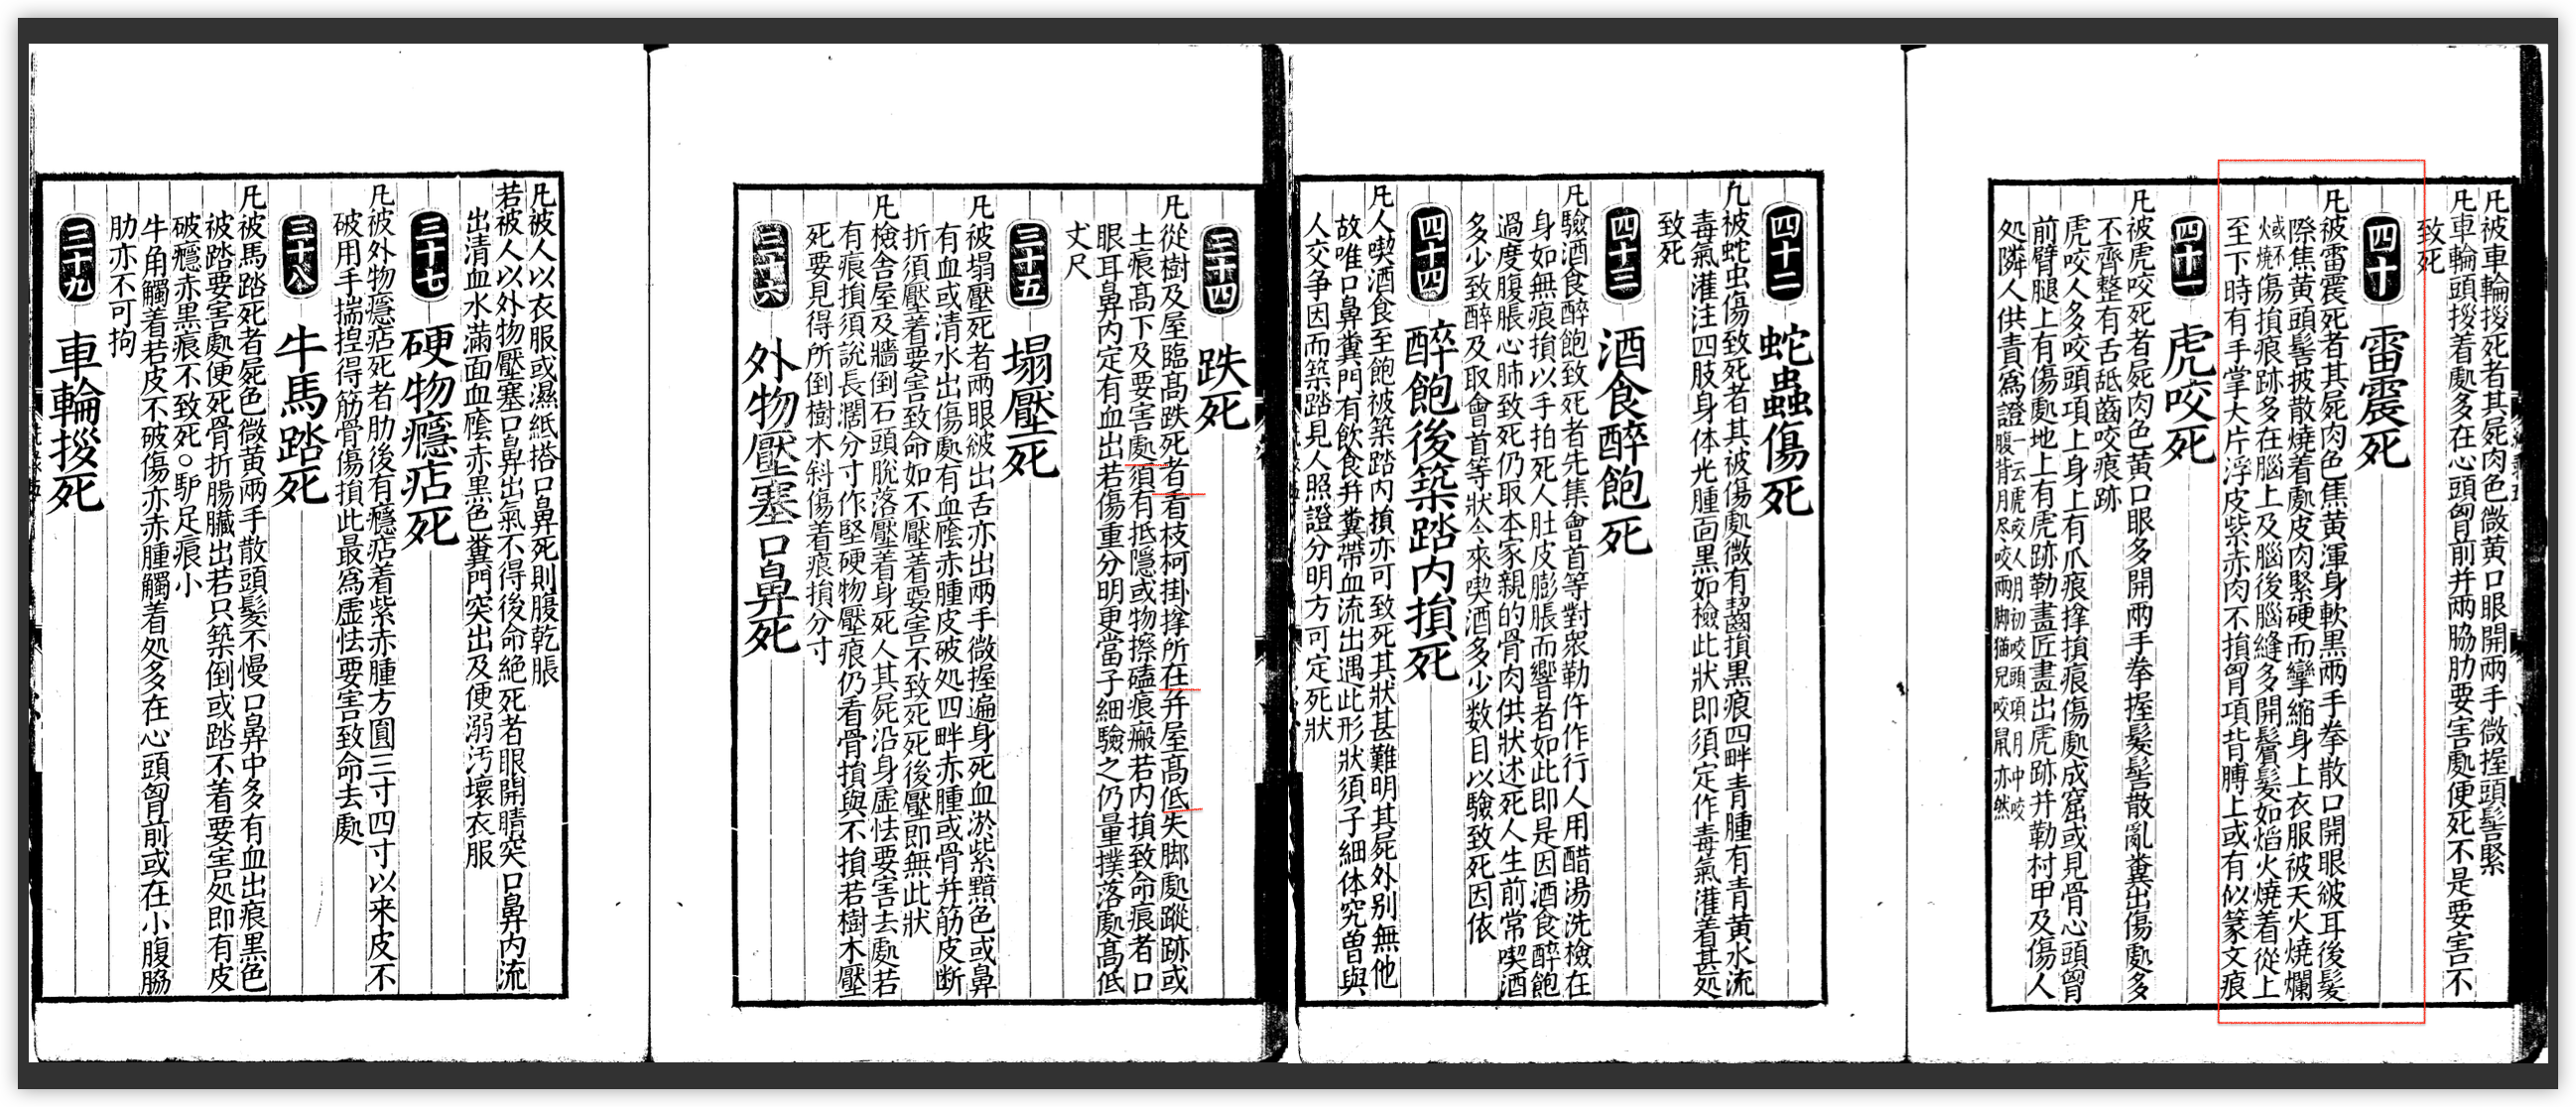 三十四 跌死
凡從樹及屋臨高跌死者看枝柯掛搼所在并屋高低失脚處蹤跡或
土痕高下及要害處須有抵隱或物擦磕痕瘢若内損致命痕者口
眼耳鼻内定有血出若傷重分明更當子細驗之仍量撲落處高低
丈尺
三十五 塌壓死
凡被塌壓死者兩眼皉出舌亦出兩手微握遍身死血淤紫黯色或鼻
有血或清水出傷處有血䕃赤腫皮破処四畔赤腫或骨并筋皮断
折須壓着要害致命如不壓着要害不致死死後壓即無此狀
凡檢舍屋及牆倒石頭脫落壓着身死人其屍沿身虛怯要害去處若
有痕損須說長濶分寸作堅硬物壓痕仍看骨損與不損若樹木壓
死要見得所倒樹木斜傷着痕損分寸
三十六 外物壓塞口鼻死
凡被人以衣服或濕紙搭口鼻死則腹乾脹
若被人以外物壓塞口鼻出氣不得後命絕死者眼開睛突口鼻内流
出清血水滿面血䕃赤黑色糞門突出及便溺污壞衣服
三十七 硬物癮痁死
凡被外物癮痁死者肋後有癮痁着紫赤腫方圓三寸四寸以来皮不
破用手揣捏得筋骨傷損此最爲虛怯要害致命去處
三十八 牛馬踏死
凡被馬踏死者屍色微黃兩手散頭髪不慢口鼻中多有血出痕黑色
被踏要害處便死骨折腸臟出若只築倒或踏不着要害処即有皮
破癮赤黑痕不致死○馿足痕小
牛角觸着若皮不破傷亦赤腫觸着処多在心頭胷前或在小腹脇
肋亦不可拘
三十九 車輪拶死
凡被車輪拶死者其屍肉色微黃口眼開兩手微握頭髻緊
凡車輪頭拶着處多在心頭胷前并兩脇肋要害處便死不是要害不
致死
四十 雷震死
凡被雷震死者其屍肉色焦黃渾身軟黑兩手拳散口開眼皉耳後髪
際焦黃頭髻披散燒着處皮肉緊硬而攣縮身上衣服被天火燒爛
或不火燒傷損痕跡多在腦上及腦後腦縫多開鬢髪如焰火燒着從上
至下時有手掌大片浮皮紫赤肉不損胷項背膊上或有似篆文痕
四十一 虎咬死
凡被虎咬死者屍肉色黃口眼多開兩手拳握髪髻散亂糞出傷處多
不齊整有舌舐齒咬痕跡
虎咬人多咬頭項上身上有爪痕搼損痕傷處成窟或見骨心頭胷
前臂腿上有傷處地上有虎跡勒畫匠畫出虎跡并勒村甲及傷人
処隣人供責爲證一云虎咬人月初咬頭項月中咬腹背月尽咬兩脚猫兒咬鼠亦然
四十二 蛇蟲傷死
凡被蛇虫傷致死者其被傷處微有齧損黑痕四畔青腫有青黃水流
毒氣灌注四肢身体光腫面黑如檢此狀即須定作毒氣灌着甚処
致死
四十三 酒食醉飽死
凡驗酒食醉飽致死者先集會首等對衆勒仵作行人用醋湯洗檢在
身如無痕損以手拍死人肚皮膨脹而響者如此即是因酒食醉飽
過度腹脹心肺致死仍取本家親的骨肉供狀述死人生前常喫酒
多少致醉及取會首等狀今來喫酒多少数目以驗致死因依
四十四 醉飽後築踏内損死
凡人喫酒食至飽被築踏内損亦可致死其狀甚難明其屍外别無他
故唯口鼻糞門有飲食并糞帶血流出遇此形狀須子細体究曾與
人交争因而築踏見人照證分明方可定死狀